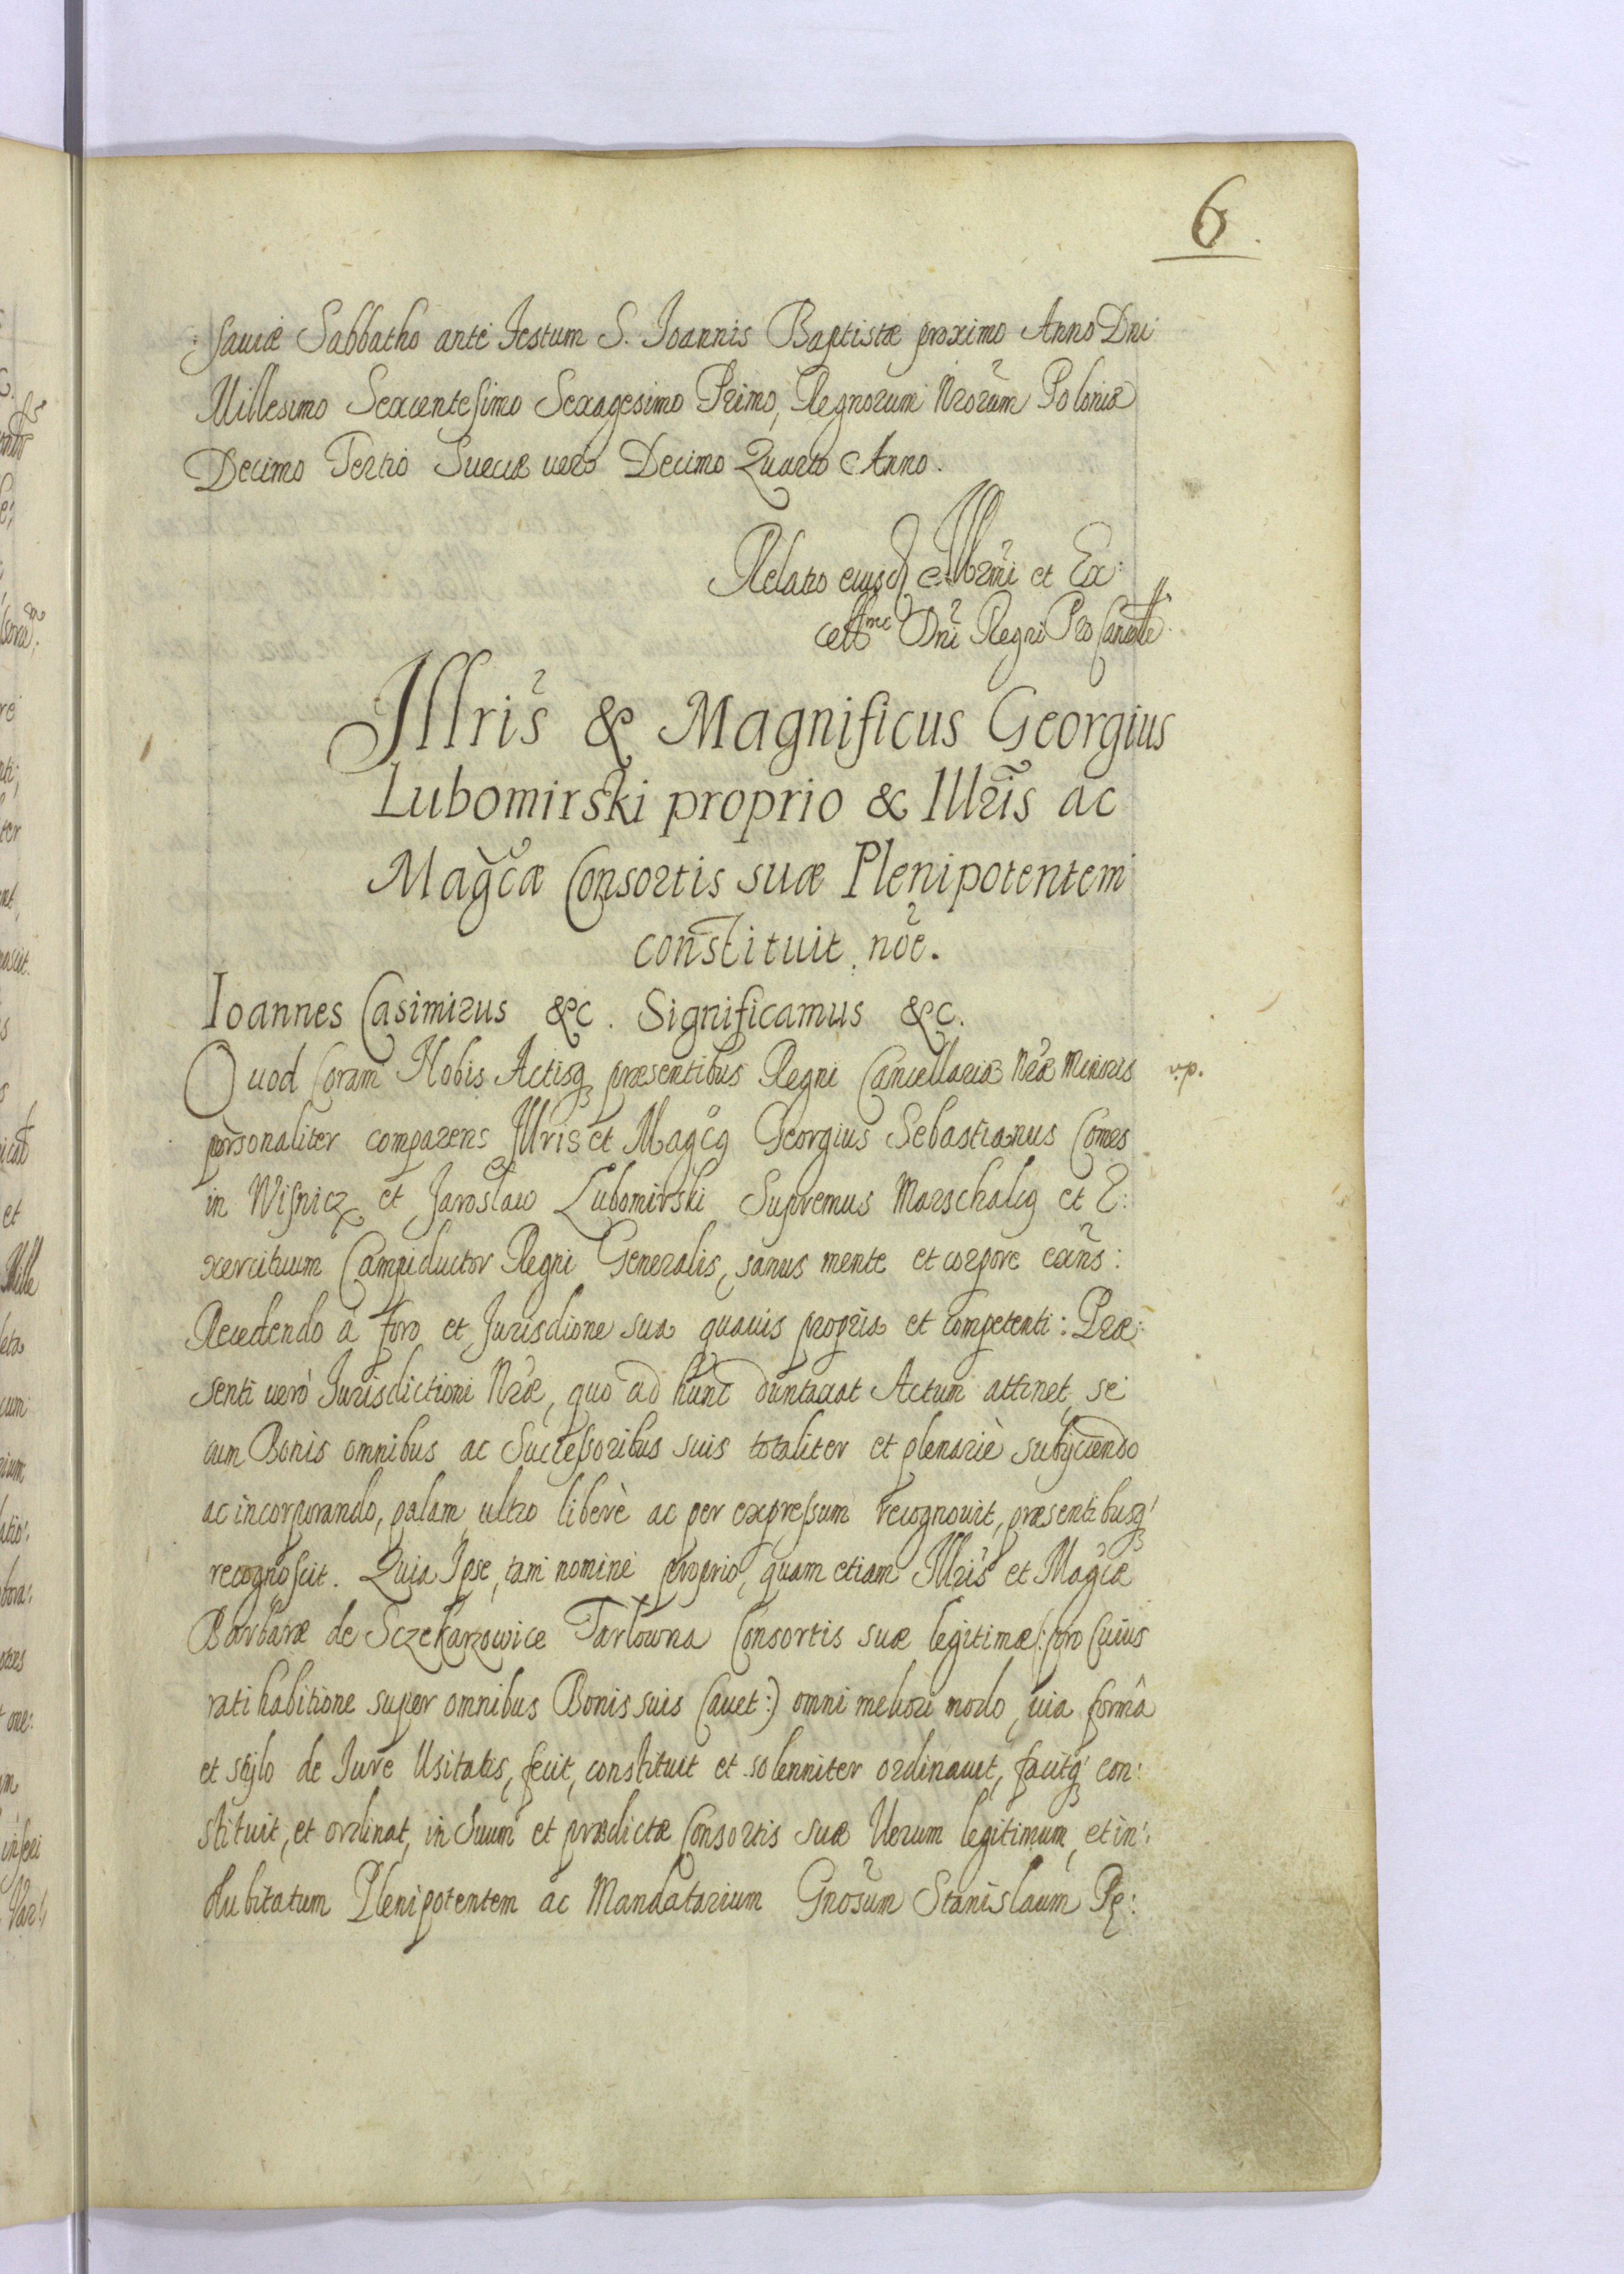 6.
:saviæ Sabbatho ante Festum S. Ioannis Baptistæ proximo Anno Dni
Millesimo Sexcentesimo Sexagesimo Primo, Regnorum Nrorum Poloniæ
Decimo Tertio Sueciæ vero Decimo Quarto Anno.
Relatio eiusd Illrmi et Ex:
cellmi Dni Regni Pro Cancell.
Illris & Magnificus Georgius
Lubomirski proprio & Illris ac
Magcæ Consortis suæ Plenipotentem
constituit noe.
Ioannes Casimirus &c. Significamus &c.
Quod Coram Nobis Actisq præsentibus Regni Cancellariæ Nræ Minoris
v.p.
personaliter comparens Illris et Magcq Georgius Sebastianus Comes
in Wisnicz et Jaroslaw Lubomirski Supremus Marschalcq et E:
xercituum Campiductor Regni Generalis, sanus mente et corpore exns:
Recedendo à foro et Jurisdione sua quavis propria et competenti: Præ:
senti verò Jurisdictioni Nræ, quo ad hunc duntaxat Actum attinet, se
cum Bonis omnibus ac Successoribus suis totaliter et plenariè subyciendo
ac incorporando, palam ultro liberè ac per expressum recognovit, præsentibusq
recognoscit. Quia Ipse, tam nomine proprio, quam etiam Illris et Magcæ
Barbaræ de Sczekarzowice Tarlowna Consortis suæ legitimæ (:pro Cuius
rati habitione super omnibus Bonis suis Cavet:) omni meliori modo, via formâ
et stylo de Jure Usitatis, fecit, constituit et solenniter ordinavit, facitq con:
stituit, et ordinat, in Suum et prædictæ Consortis suæ Verum legitimum, et in:
dubitatum Plenipotentem ac Mandatarium Gnosum Stanislaum Pę: